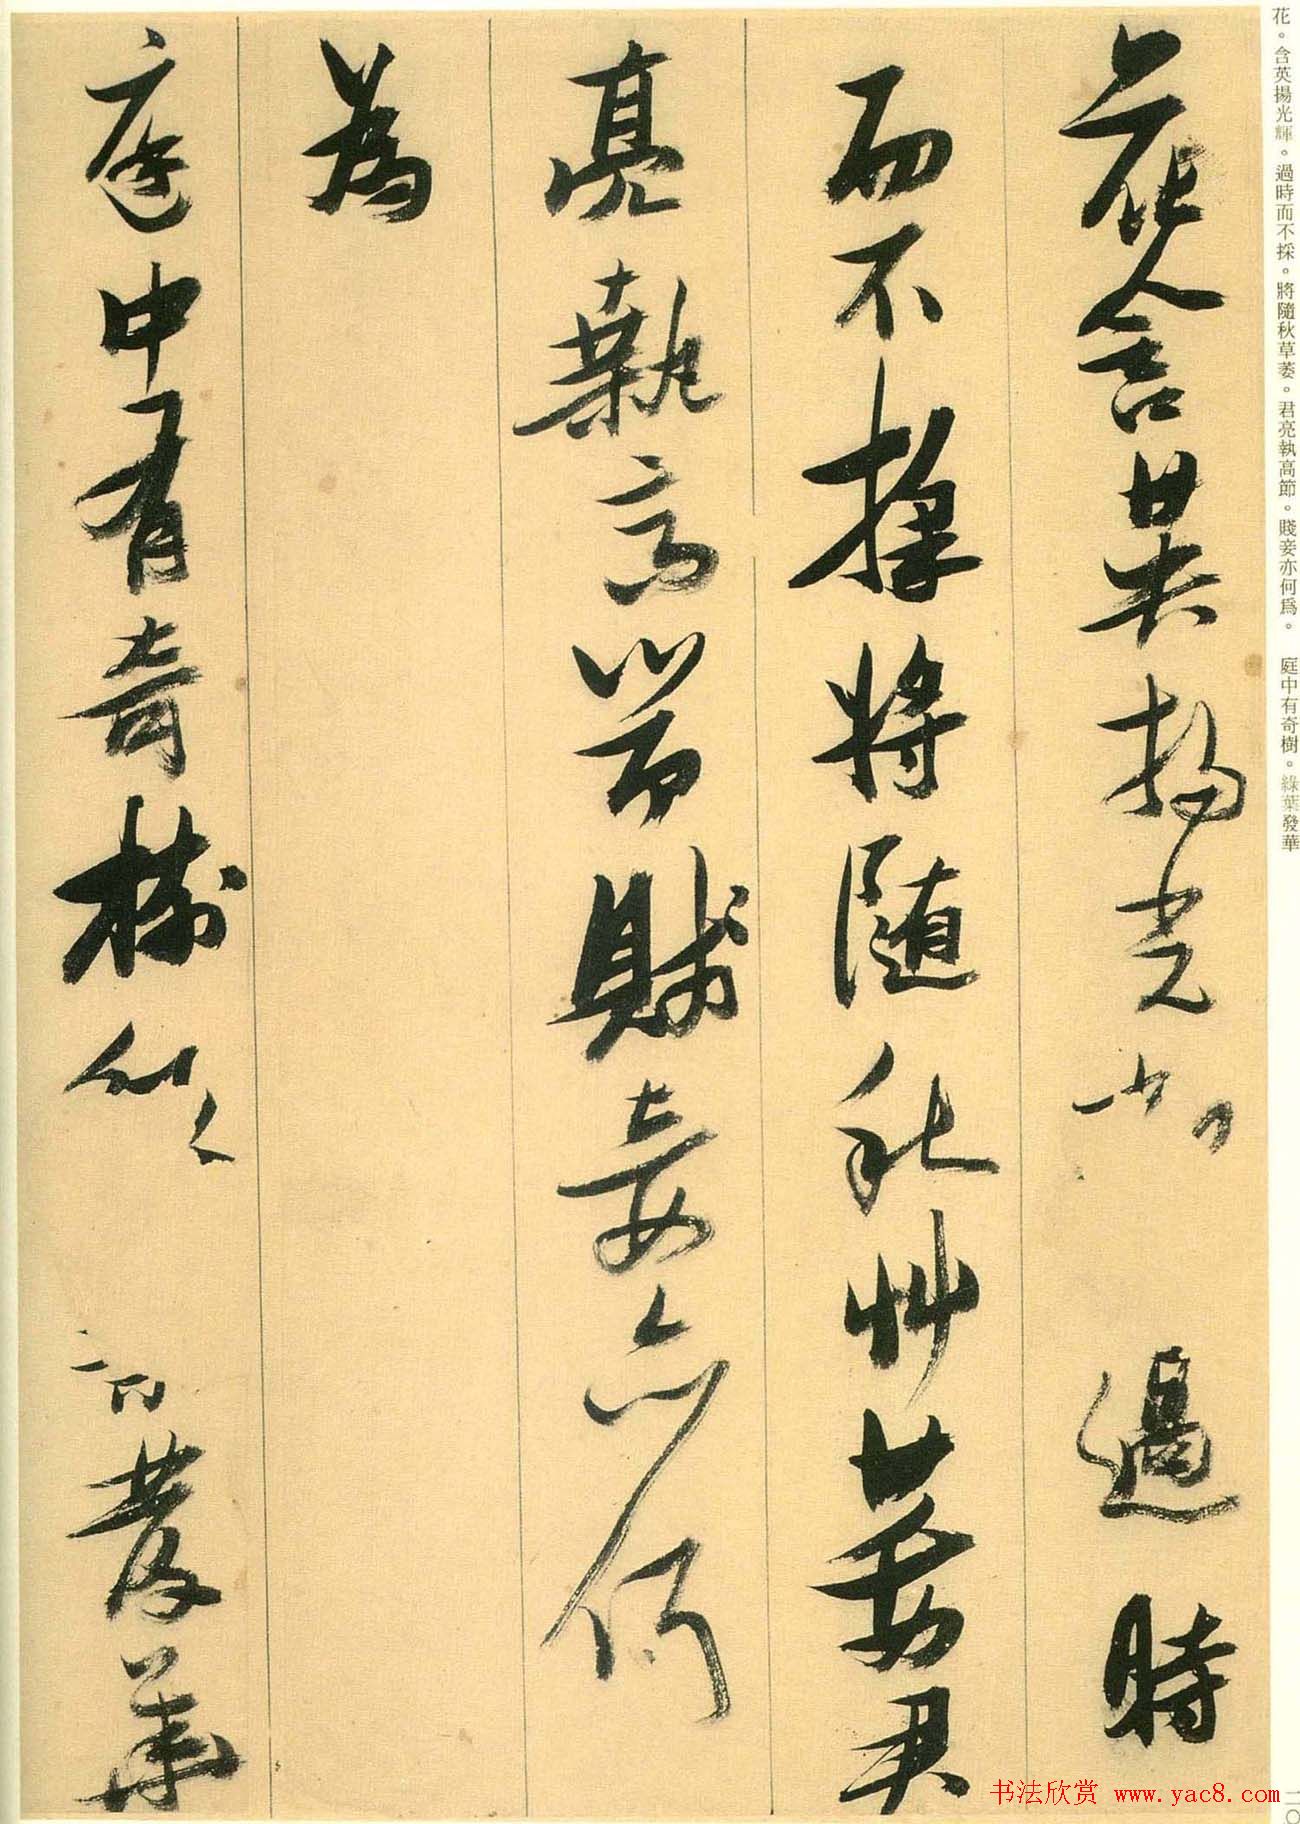 花。含英揚光輝。過時而不採。將隨秋草萎。君亮執高節。賤妾亦何爲。 庭中有奇樹。綠葉發華
花含英揚光 過時
而不採將隨秋艸萎君
亮執高節賤妾亦何
為
庭中有奇樹 發華
书法欣赏 www.yac8.com